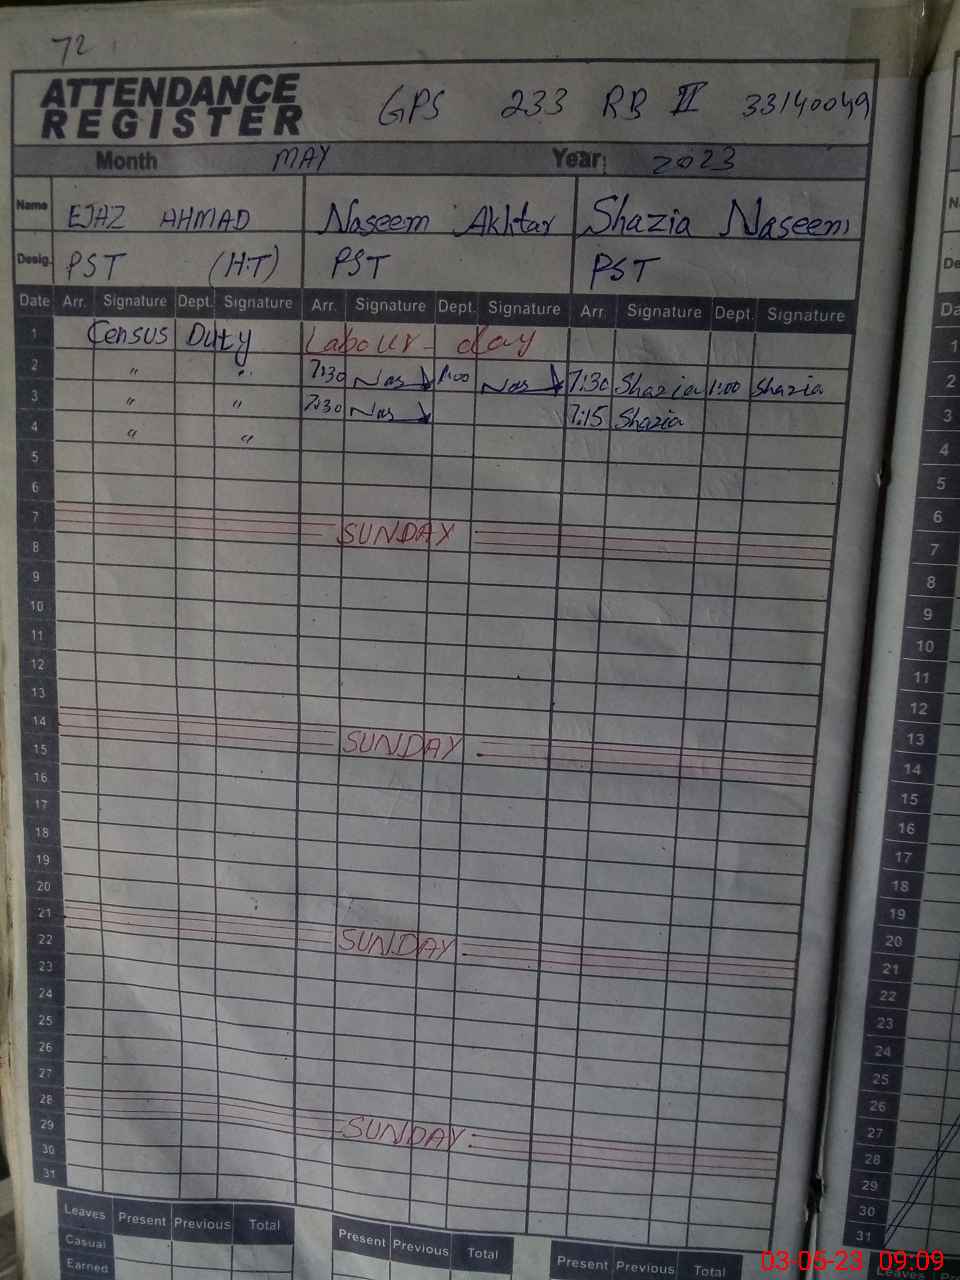 72
ATTENDANCE
REGISTER
GPS 233 RB II 33140049
Month MAY Year: 2023
Name EJAZ AHMAD Naseem Akhtar Shazia Naseem
Desig. PST (H.T) PST PST
Date Arr. Signature Dept. Signature Arr. Signature Dept. Signature Arr. Signature Dept. Signature
1 Census Duty Labour day
2 " " 7:30 Nas 1:00 Nas 7:30 Shazia 1:00 Shazia
3 " " 7:30 Nas 7:15 Shazia
4 " "
5
6
7 SUNDAY
8
9
10
11
12
13
14 SUNDAY
15
16
17
18
19
20
21 SUNDAY
22
23
24
25
26
27
28 SUNDAY
29
30
31
Leaves Present Previous Total Present Previous Total Present Previous Total
Casual
Earned
Da
1
2
3
4
5
6
7
8
9
10
11
12
13
14
15
16
17
18
19
20
21
22
23
24
25
26
27
28
29
30
31
Leaves
03-05-23 09:09